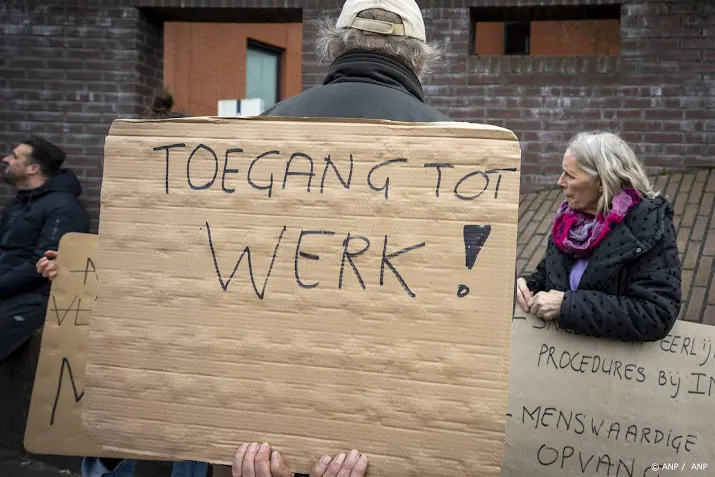 TOEGANG TOT
WERK!
PROCEDURES BIJ
- MENSWAARDIGE
OPVANG
© ANP / ANP